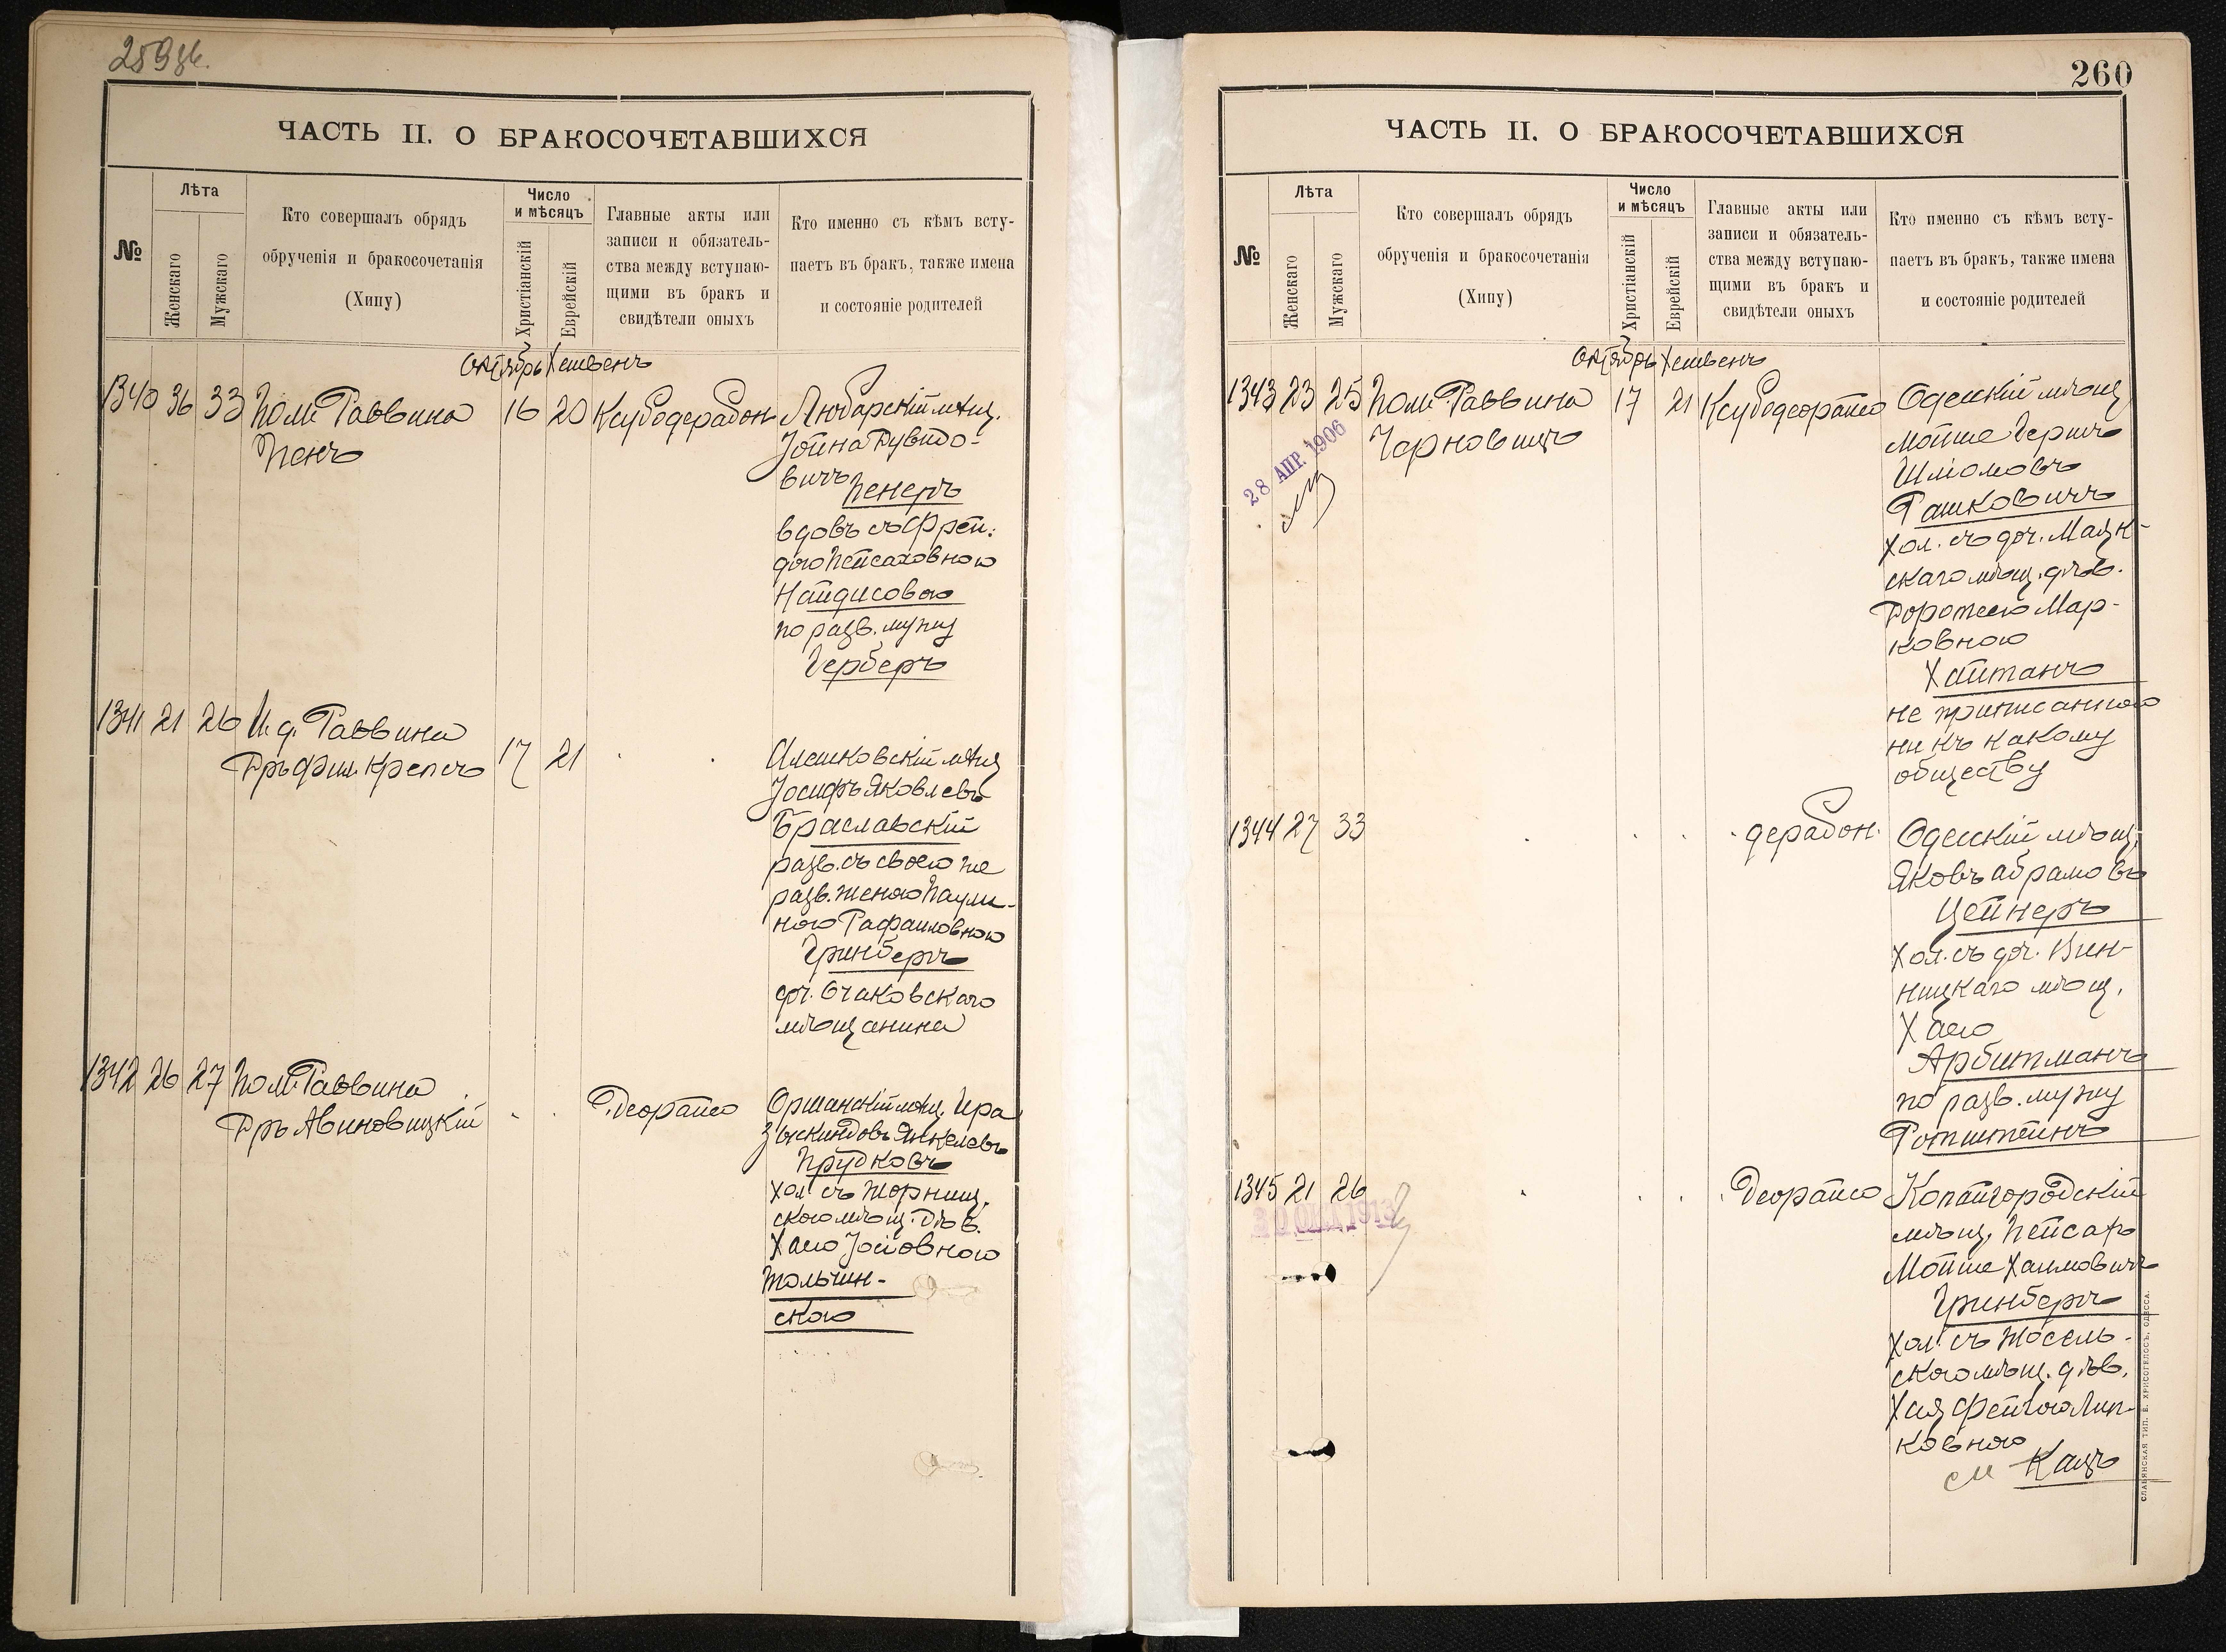 259 об.
ЧАСТЬ II. О БРАКОСОЧЕТАВШИХСЯ
№
Лѣта
Женскаго
Мужскаго
Кто совершалъ обрядъ
обрученія и бракосочетанія
(Хипу)
Число
и мѣсяцъ
Христіанскій
Еврейскій
Главные акты или
записи и обязатель-
ства между вступаю-
щими въ бракъ и
свидѣтели оныхъ
Кто именно съ кѣмъ всту-
паетъ въ бракъ, также имена
и состояніе родителей
Октябрь Хешвенъ
1340 36 33 Пом. Раввина 16 20 Ксубодерабон Любарскій мѣщ.
Пенъ
Іойна Дувидо-
вичъ Пекеръ
вдовъ съ Фрей-
дою Пейсаховною
Найдисовою
по разв. мужу
Герберъ
1341 21 26 И. д. Раввина
Дръ Фил. Крепсъ 17 21
Алешковскій мѣщ
Іосифъ Яковлевъ
Браславскій
разв. съ своею же
разв. женою Паули-
ною Рафаиловною
Гринбергъ
доч. Очаковскаго
мѣщанина
1342 26 27 Пом. Раввина
Дръ Авиновицкій
Деорайсо
Оршанскій мѣщ. Ицра
Зыскиндовъ Янкелевъ
Прудковъ
хол. съ Жорнищ.
скою мѣщ. дѣв.
Хаею Іосіовною
Тольчин-
скою
260
ЧАСТЬ II. О БРАКОСОЧЕТАВШИХСЯ
№
Лѣта
Женскаго
Мужскаго
Кто совершалъ обрядъ
обрученія и бракосочетанія
(Хипу)
Число
и мѣсяцъ
Христіанскій
Еврейскій
Главные акты или
записи и обязатель-
ства между вступаю-
щими въ бракъ и
свидѣтели оныхъ
Кто именно съ кѣмъ всту-
паетъ въ бракъ, также имена
и состояніе родителей
Октябрь Хешвенъ
1343 23 25 Пом. Раввина 17 21 Ксубодеорайсо Одесскій мѣщ
Чарновицъ
28 АПР. 1906
Мойше Гершъ
Шліомовъ
Рашковичъ
хол. съ доч. Маяк-
скаго мѣщ. дѣв.
Доротеею Мар-
ковною
Хайтанъ
не приписанною
ни къ какому
обществу
1344 27 33 дерабон. Одесскій мѣщ.
Яковъ Абрамовъ
Цейнеръ
хол. съ доч. Вин-
ницкаго мѣщ.
Хаею
Арбитманъ
по разв. мужу
Ротштейнъ
1345 21 26 Деорайсо Копайгородскій
мѣщ. Пейсахъ
Мойше Хаимовичъ
Гринбергъ
хол. съ
скою мѣщ. дѣв.
Хая Фейгою Лип-
ковною
Кацъ
СЛАВЯНСКАЯ ТИП. Е. ХРИСОГЕЛОСЪ, ОДЕССА.